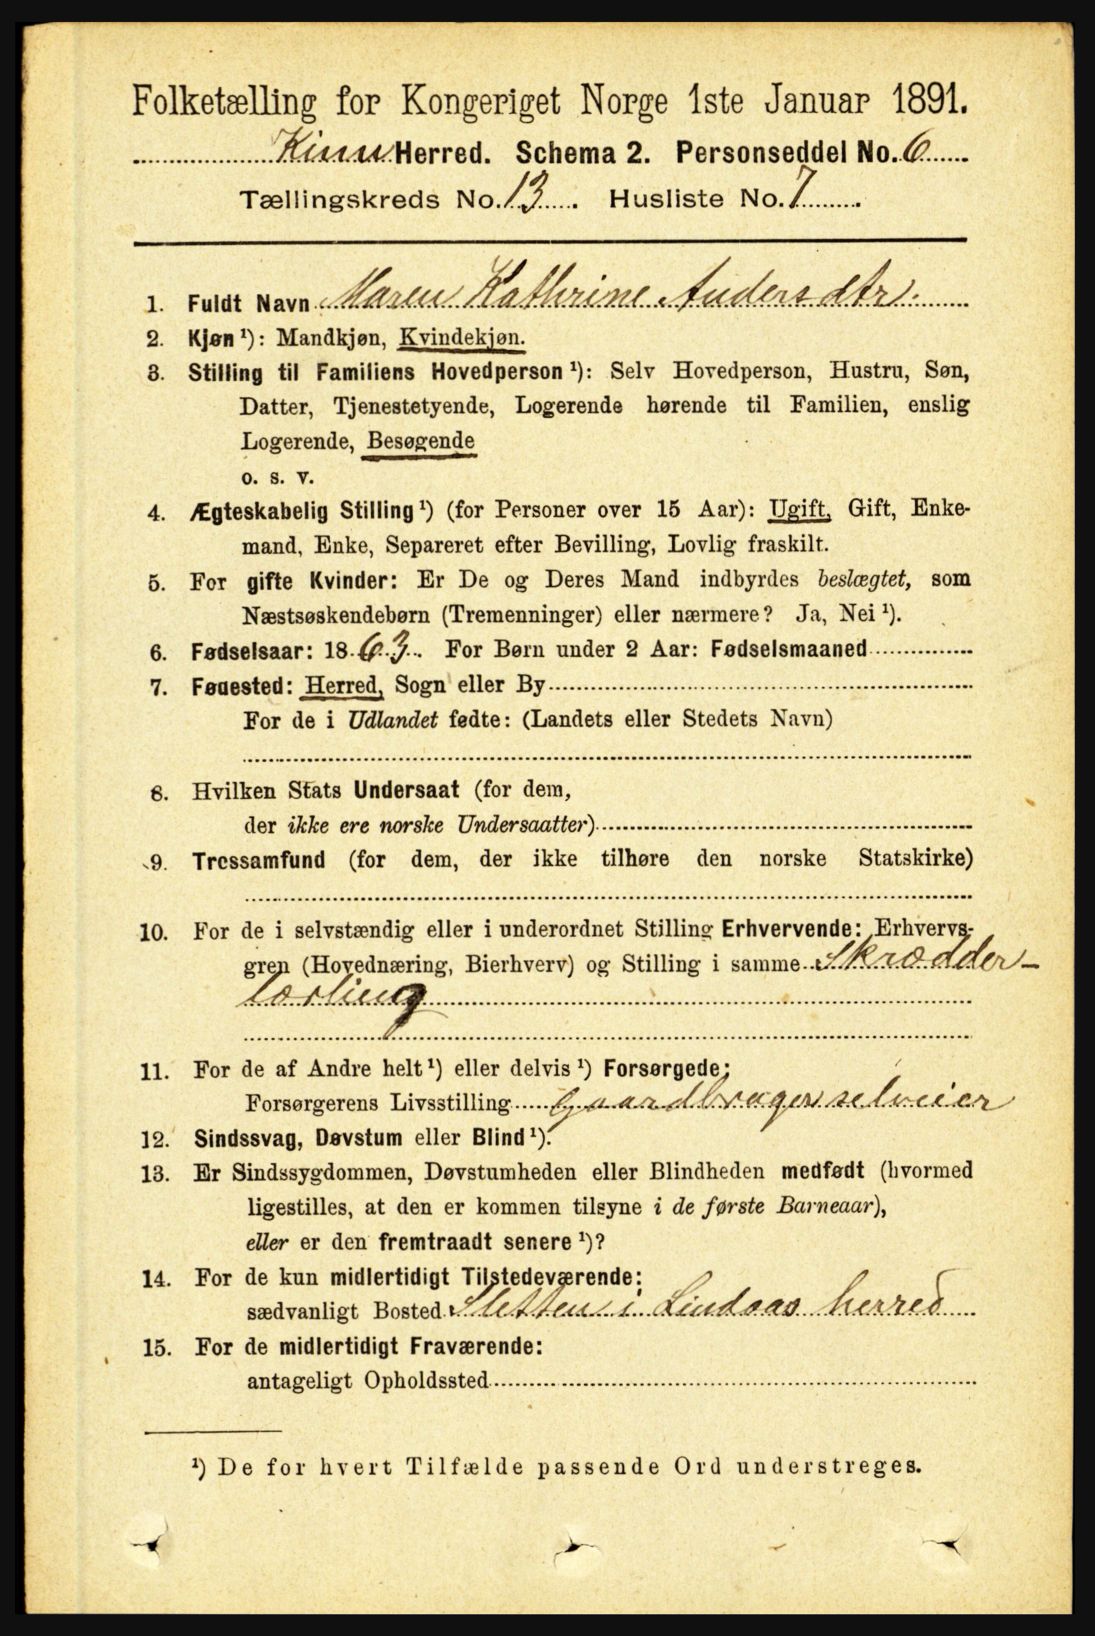 Folketælling for Kongeriget Norge 1ste Januar 1891.
Kinn Herred. Schema 2. Personseddel No. 6
Tællingskreds No. 13. Husliste No. 7.
1. Fuldt Navn Maren Kathrine Andersdtr.
2. Kjøn ¹): Mandkjøn, Kvindekjøn.
3. Stilling til Familiens Hovedperson ¹): Selv Hovedperson, Hustru, Søn,
Datter, Tjenestetyende, Logerende hørende til Familien, enslig
Logerende, Besøgende
o. s. v.
4. Ægteskabelig Stilling ¹) (for Personer over 15 Aar): Ugift, Gift, Enke-
mand, Enke, Separeret efter Bevilling, Lovlig fraskilt.
5. For gifte Kvinder: Er De og Deres Mand indbyrdes beslægtet, som
Næstsøskendebørn (Tremenninger) eller nærmere? Ja, Nei ¹).
6. Fødselsaar: 1863. For Børn under 2 Aar: Fødselsmaaned
7. Fødested: Herred, Sogn eller By
For de i Udlandet fødte: (Landets eller Stedets Navn)
8. Hvilken Stats Undersaat (for dem,
der ikke ere norske Undersaatter)
9. Trossamfund (for dem, der ikke tilhøre den norske Statskirke)
10. For de i selvstændig eller i underordnet Stilling Erhvervende: Erhvervs-
gren (Hovednæring, Bierhverv) og Stilling i samme Skrædder-
lærling
11. For de af Andre helt ¹) eller delvis ¹) Forsørgede:
Forsørgerens Livsstilling Gaardbruger selveier
12. Sindssvag, Døvstum eller Blind ¹).
13. Er Sindssygdommen, Døvstumheden eller Blindheden medfødt (hvormed
ligestilles, at den er kommen tilsyne i de første Barneaar),
eller er den fremtraadt senere ¹)?
14. For de kun midlertidigt Tilstedeværende:
sædvanligt Bosted Sletten i Lindaas herred
15. For de midlertidigt Fraværende:
antageligt Opholdssted
¹) De for hvert Tilfælde passende Ord understreges.